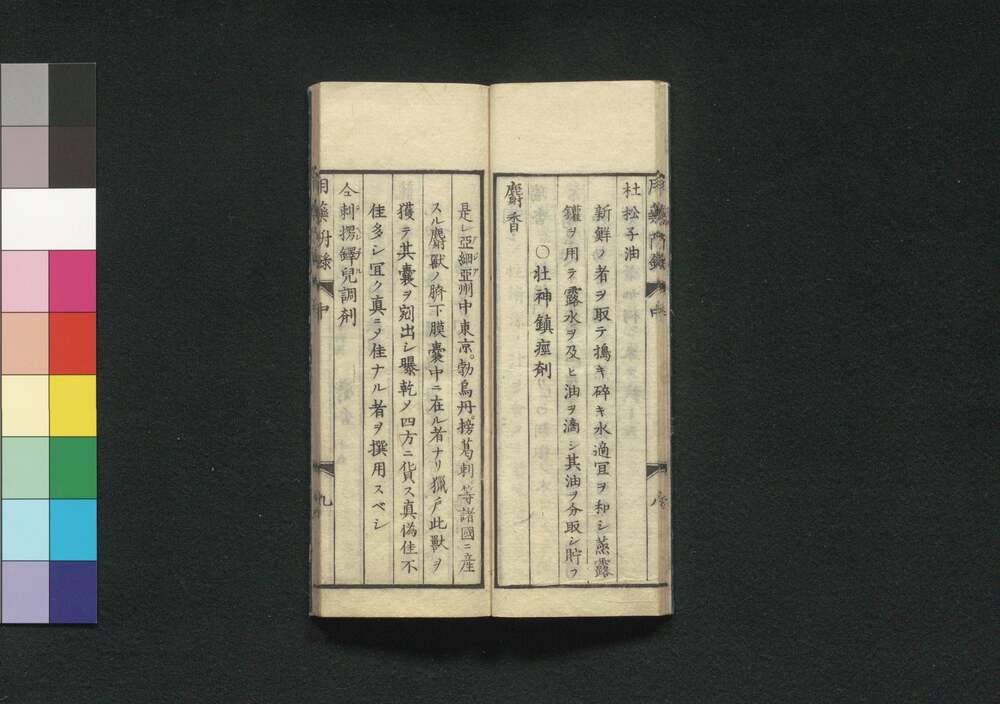 杜松子油
新鮮ノ者ヲ取テ搗キ碎キ水適宜ヲ和シ蒸露
鑵ヲ用テ露水ヲ及ヒ油ヲ滴シ其油ヲ分取シ貯フ
○壮神鎮痙剤
麝香
是レ亞細亞州中東京。勃烏丹。榜葛剌。等諸國ニ産
スル麝獸ノ臍下膜囊中ニ在ル者ナリ獵戸此獸ヲ
獲テ其囊ヲ剜出シ曝乾メ四方ニ貨ス真偽佳不
佳多シ冝ク真ニメ佳ナル者ヲ撰用スベシ
仝剌愣鐸兒調剤
中
九